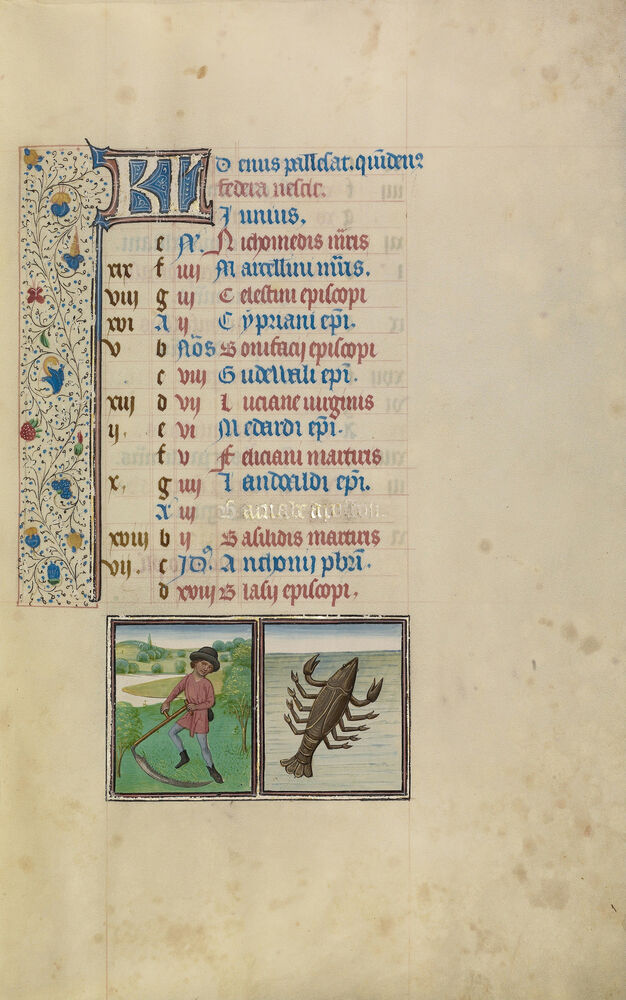 KL D enus pallesat. quindenꝰ
federa nescit.
J unius.
e N. N ichomedis mr̄is
xix f iiij M arcellini mr̄is.
viij g iij C elestini episcopi
xvi A ij C ypriani ep̄i.
v b Nōs B onifacij episcopi
c viij G udewali ep̄i.
xiij d vij L uciane uirginis
ij. e vi M edardi ep̄i.
f v F eliciani martiris
x. g iiij L andoaldi ep̄i.
A iij B arnabe apostoli.
xviij b ij B asilidis martiris
vij. c Jdꝰ A nthonij pbr̄i.
d xviij B lasij episcopi.